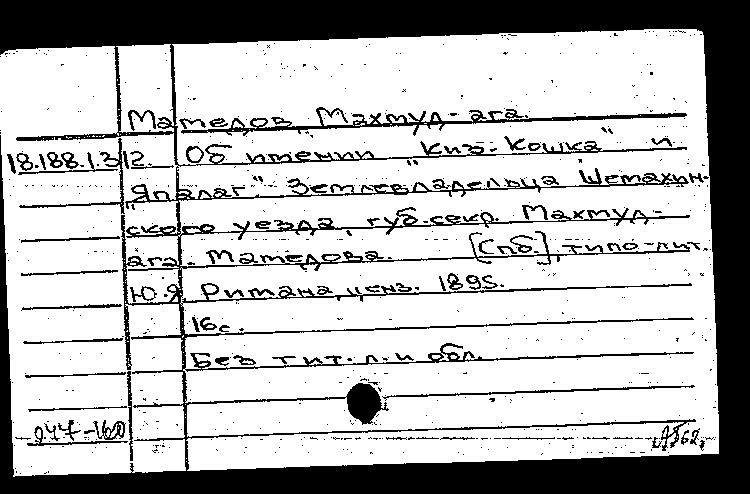 Мамедов, Махмуд-ага.
18.188.1.312. Об имении "Киз-Кошка" и
"Япалаг". Землевладельца Шемахин-
ского уезда, губ. секр. Махмуд-
ага. Мамедова. [Спб.], типо-лит.
Ю.Я. Римана, ценз. 1895.
16с.
Без тит. л. и обл.
247-160